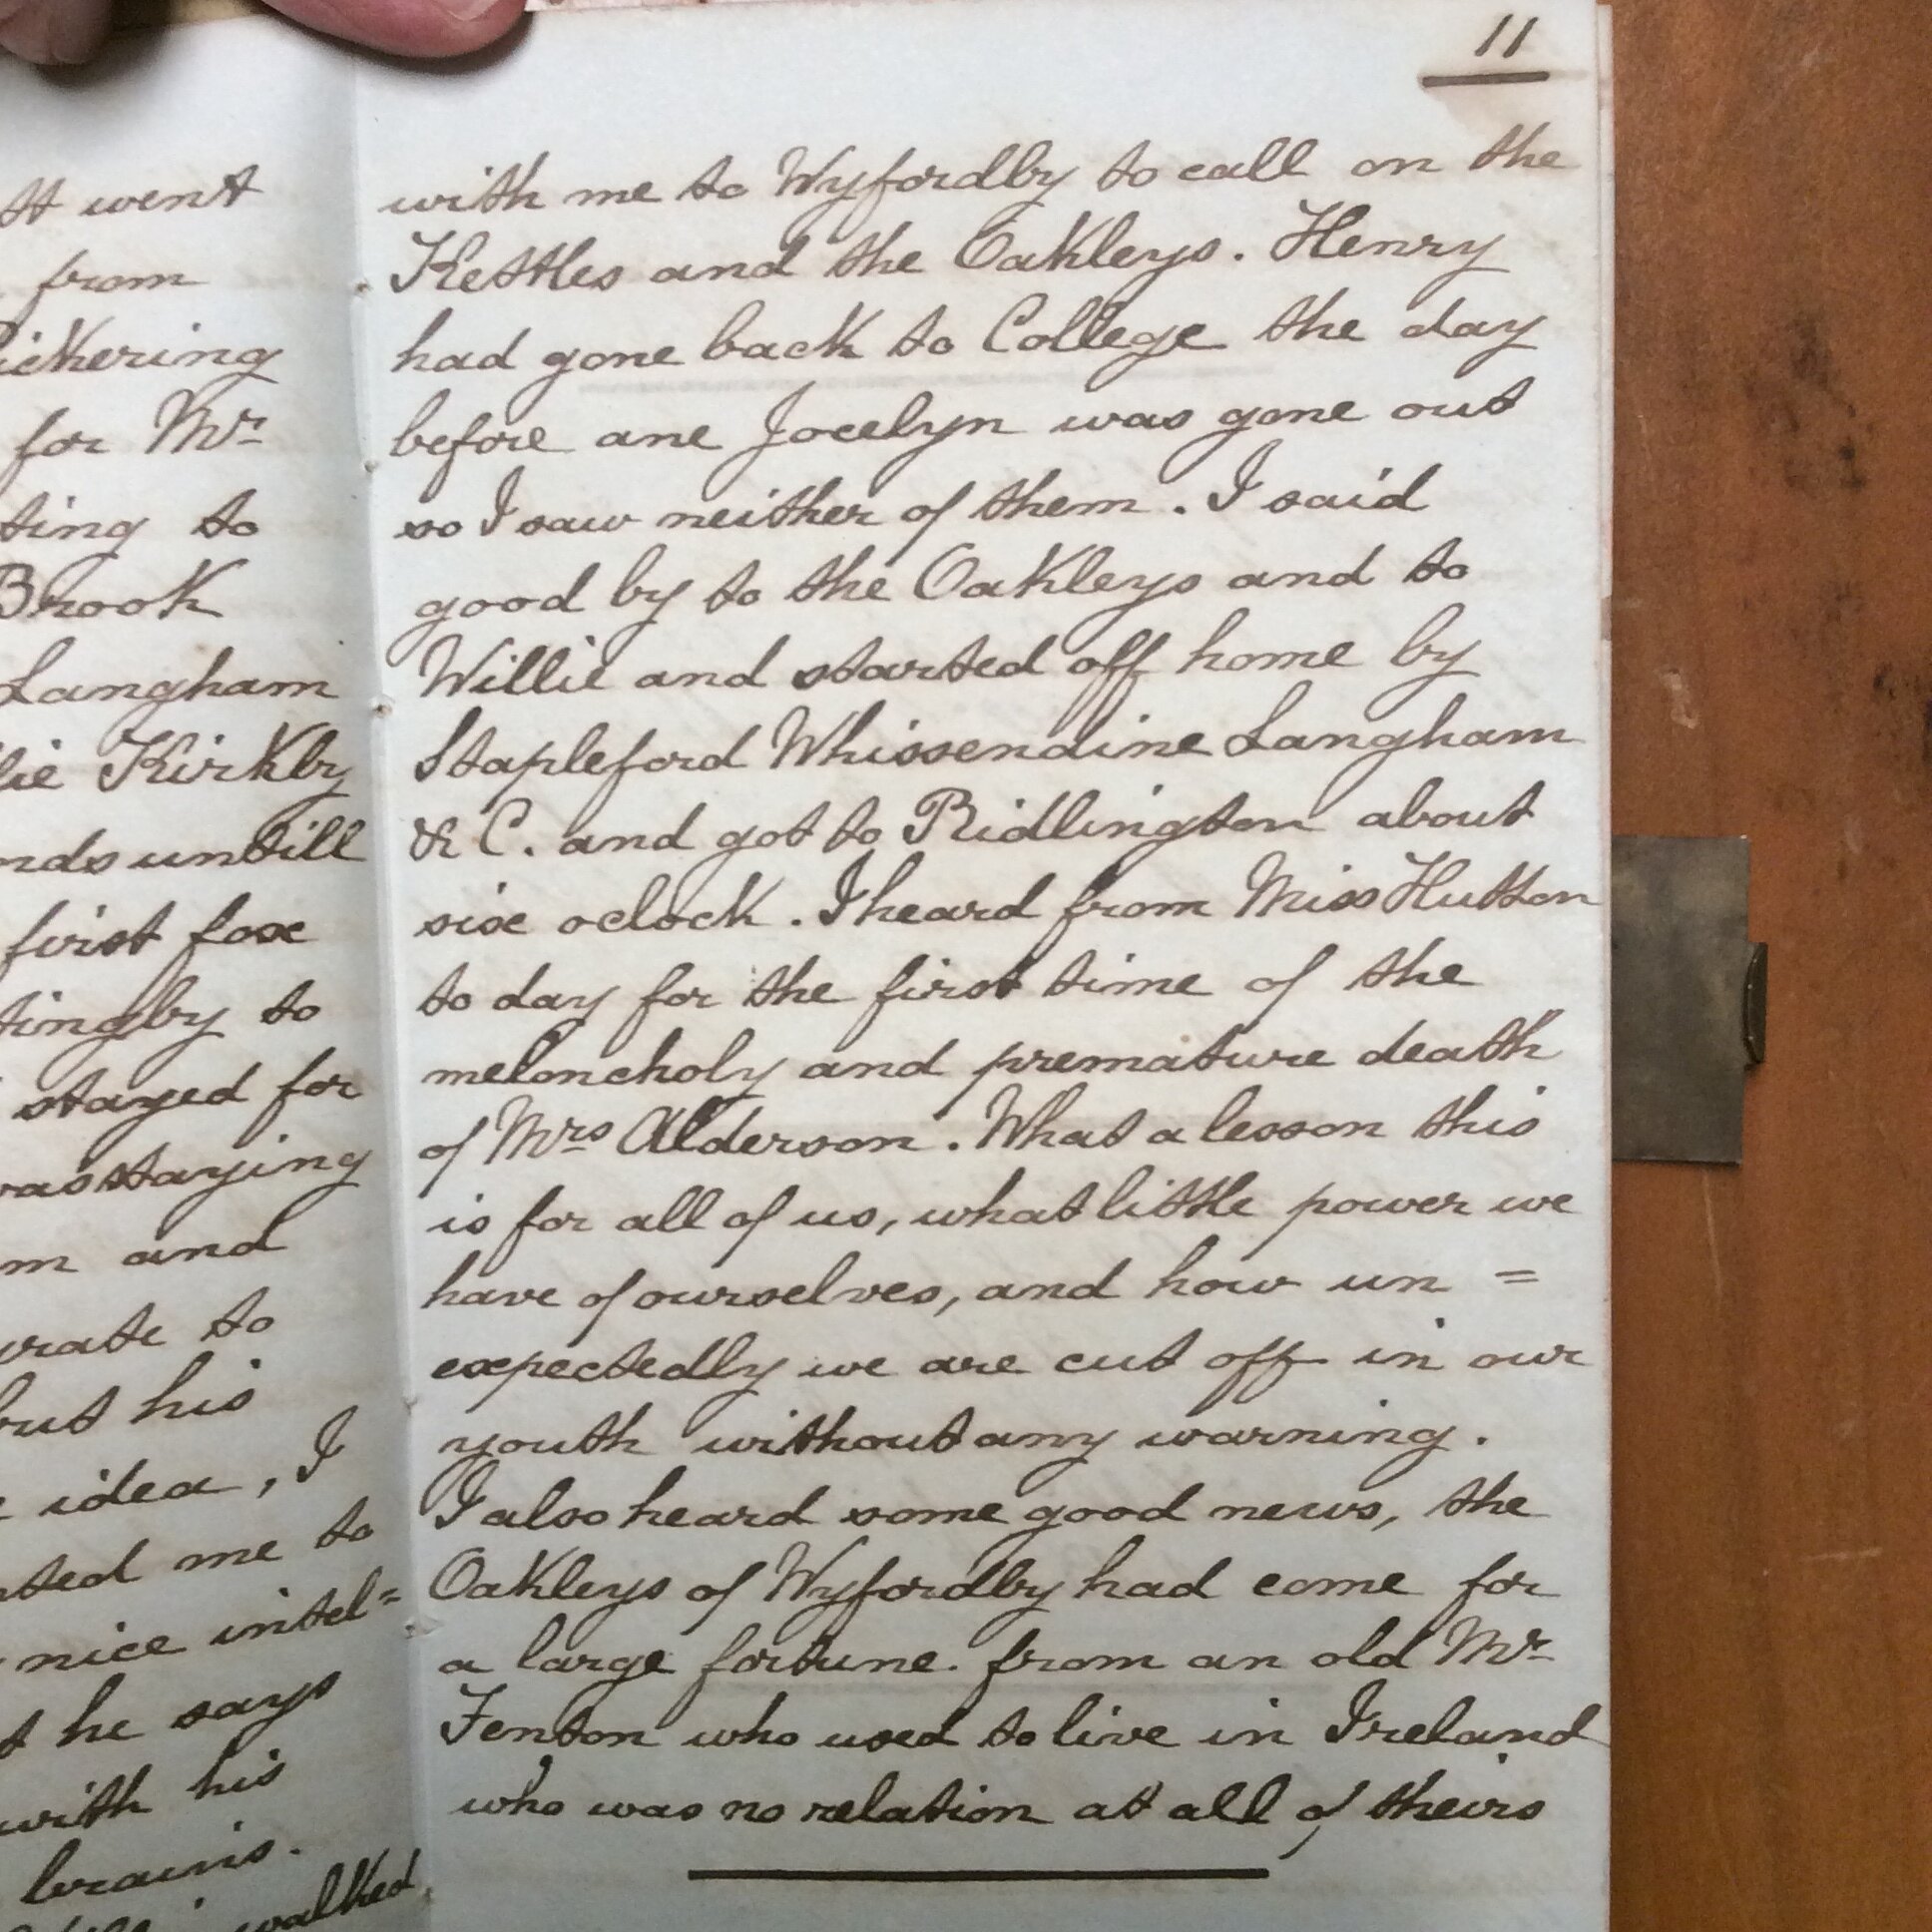 tt went
from
ickering
for Mr
ting to
Brook
Langham
lie Kirkby
nds untill
first fox
tingby to
stayed for
was staying
m and
urate to
but his
idea, I
nted me to
nice intel=
t he says
with his
brains.
walked
11
with me to Wyfordby to call on the
Kettles and the Oakleys. Henry
had gone back to College the day
before ane Jocelyn was gone out
so I saw neither of them. I said
good by to the Oakleys and to
Willie and started off home by
Stapleford Whissendine Langham
& C. and got to Ridlington about
six oclock. I heard from Miss Hutton
to day for the first time of the
meloncholy and premature death
of Mrs Alderson. What a lesson this
is for all of us, what little power we
have of ourselves, and how un =
expectedly we are cut off in our
youth without any warning.
I also heard some good news, the
Oakleys of Wyfordby had come for
a large fortune. from an old Mr
Fenton who used to live in Ireland
who was no relation at all of theirs